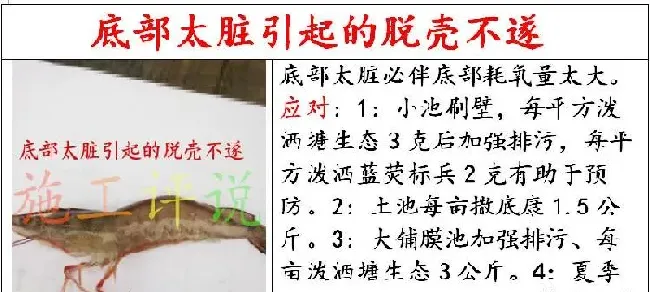 底部太脏引起的脱壳不遂
底部太脏引起的脱壳不遂
施工评说
底部太脏必伴底部耗氧量太大。
应对：1：小池刷壁，每平方泼
洒塘生态3克后加强排污，每平
方泼洒蓝荧标兵2克有助于预
防。2：土池每亩撒底康1.5公
斤。3：大铺膜池加强排污、每
亩泼洒塘生态3公斤。4：夏季